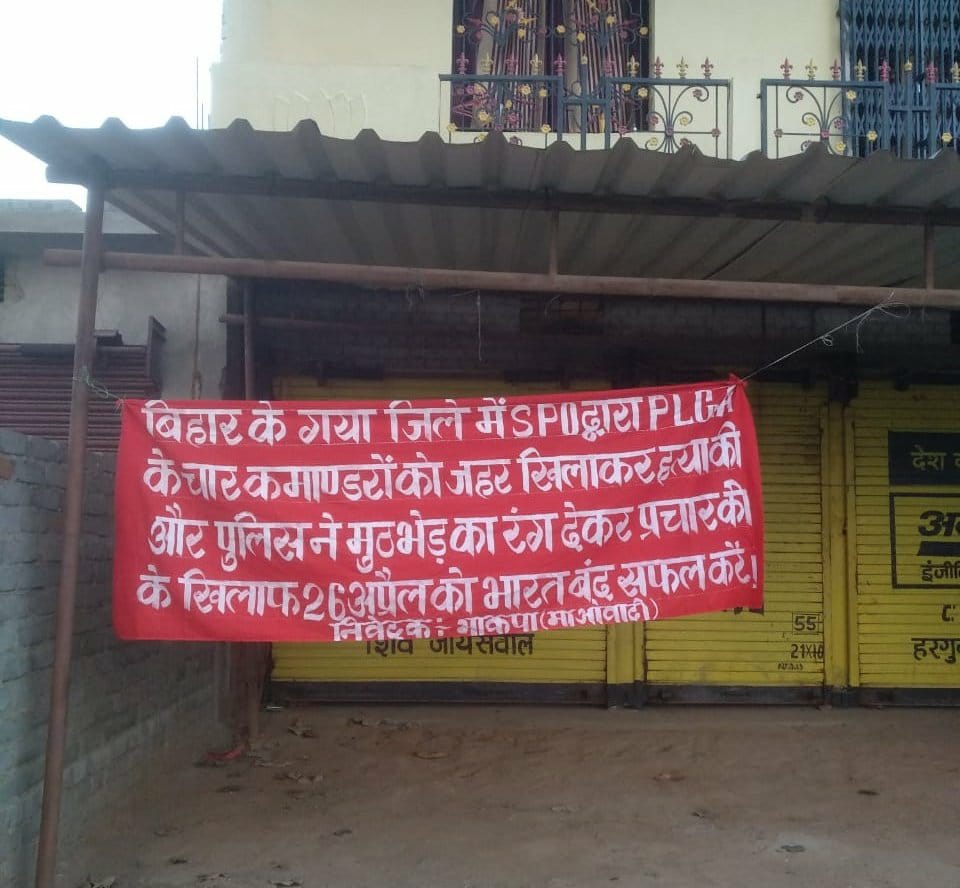 बिहार के गया जिले में SPO द्वारा PLGA
के चार कमाण्डरों को जहर खिलाकर हत्या की
और पुलिस ने मुठभेड़ का रंग देकर प्रचार की
के खिलाफ 26 अप्रैल को भारत बंद सफल करें!
निवेदक: भाकपा (माओवादी)
शिव जायसवाल
55
21X10
देश
इंजी
हरगु